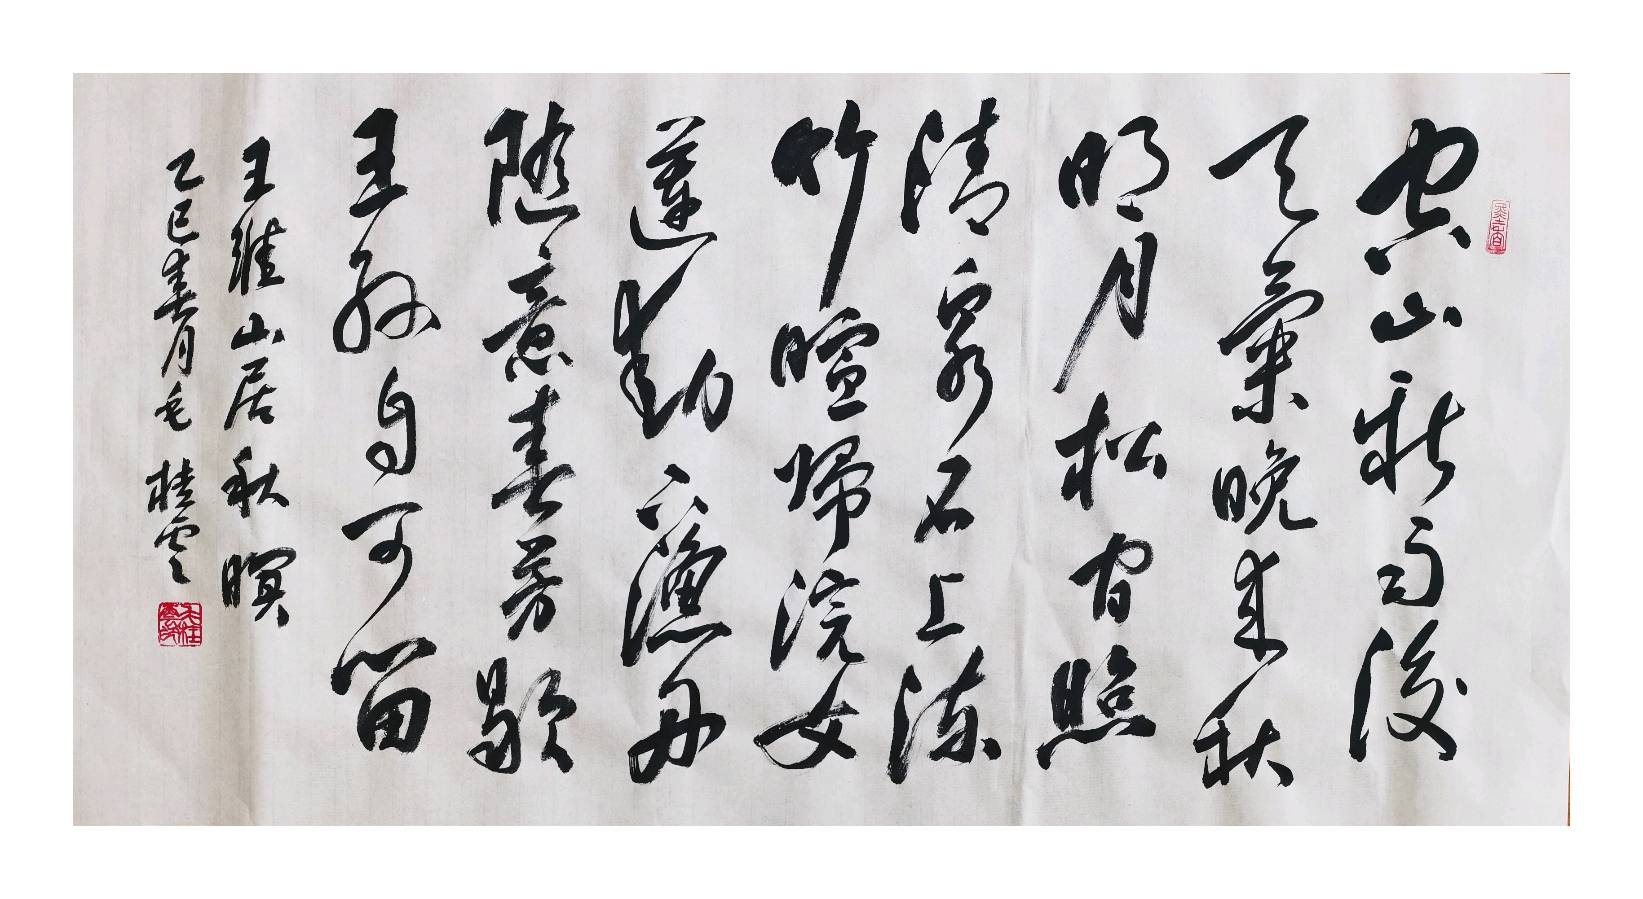 空山新雨後
天氣晚來秋
明月松間照
清泉石上流
竹喧歸浣女
蓮動下漁舟
隨意春芳歇
王孫自可留
王維山居秋暝
乙巳春月毛桂雲